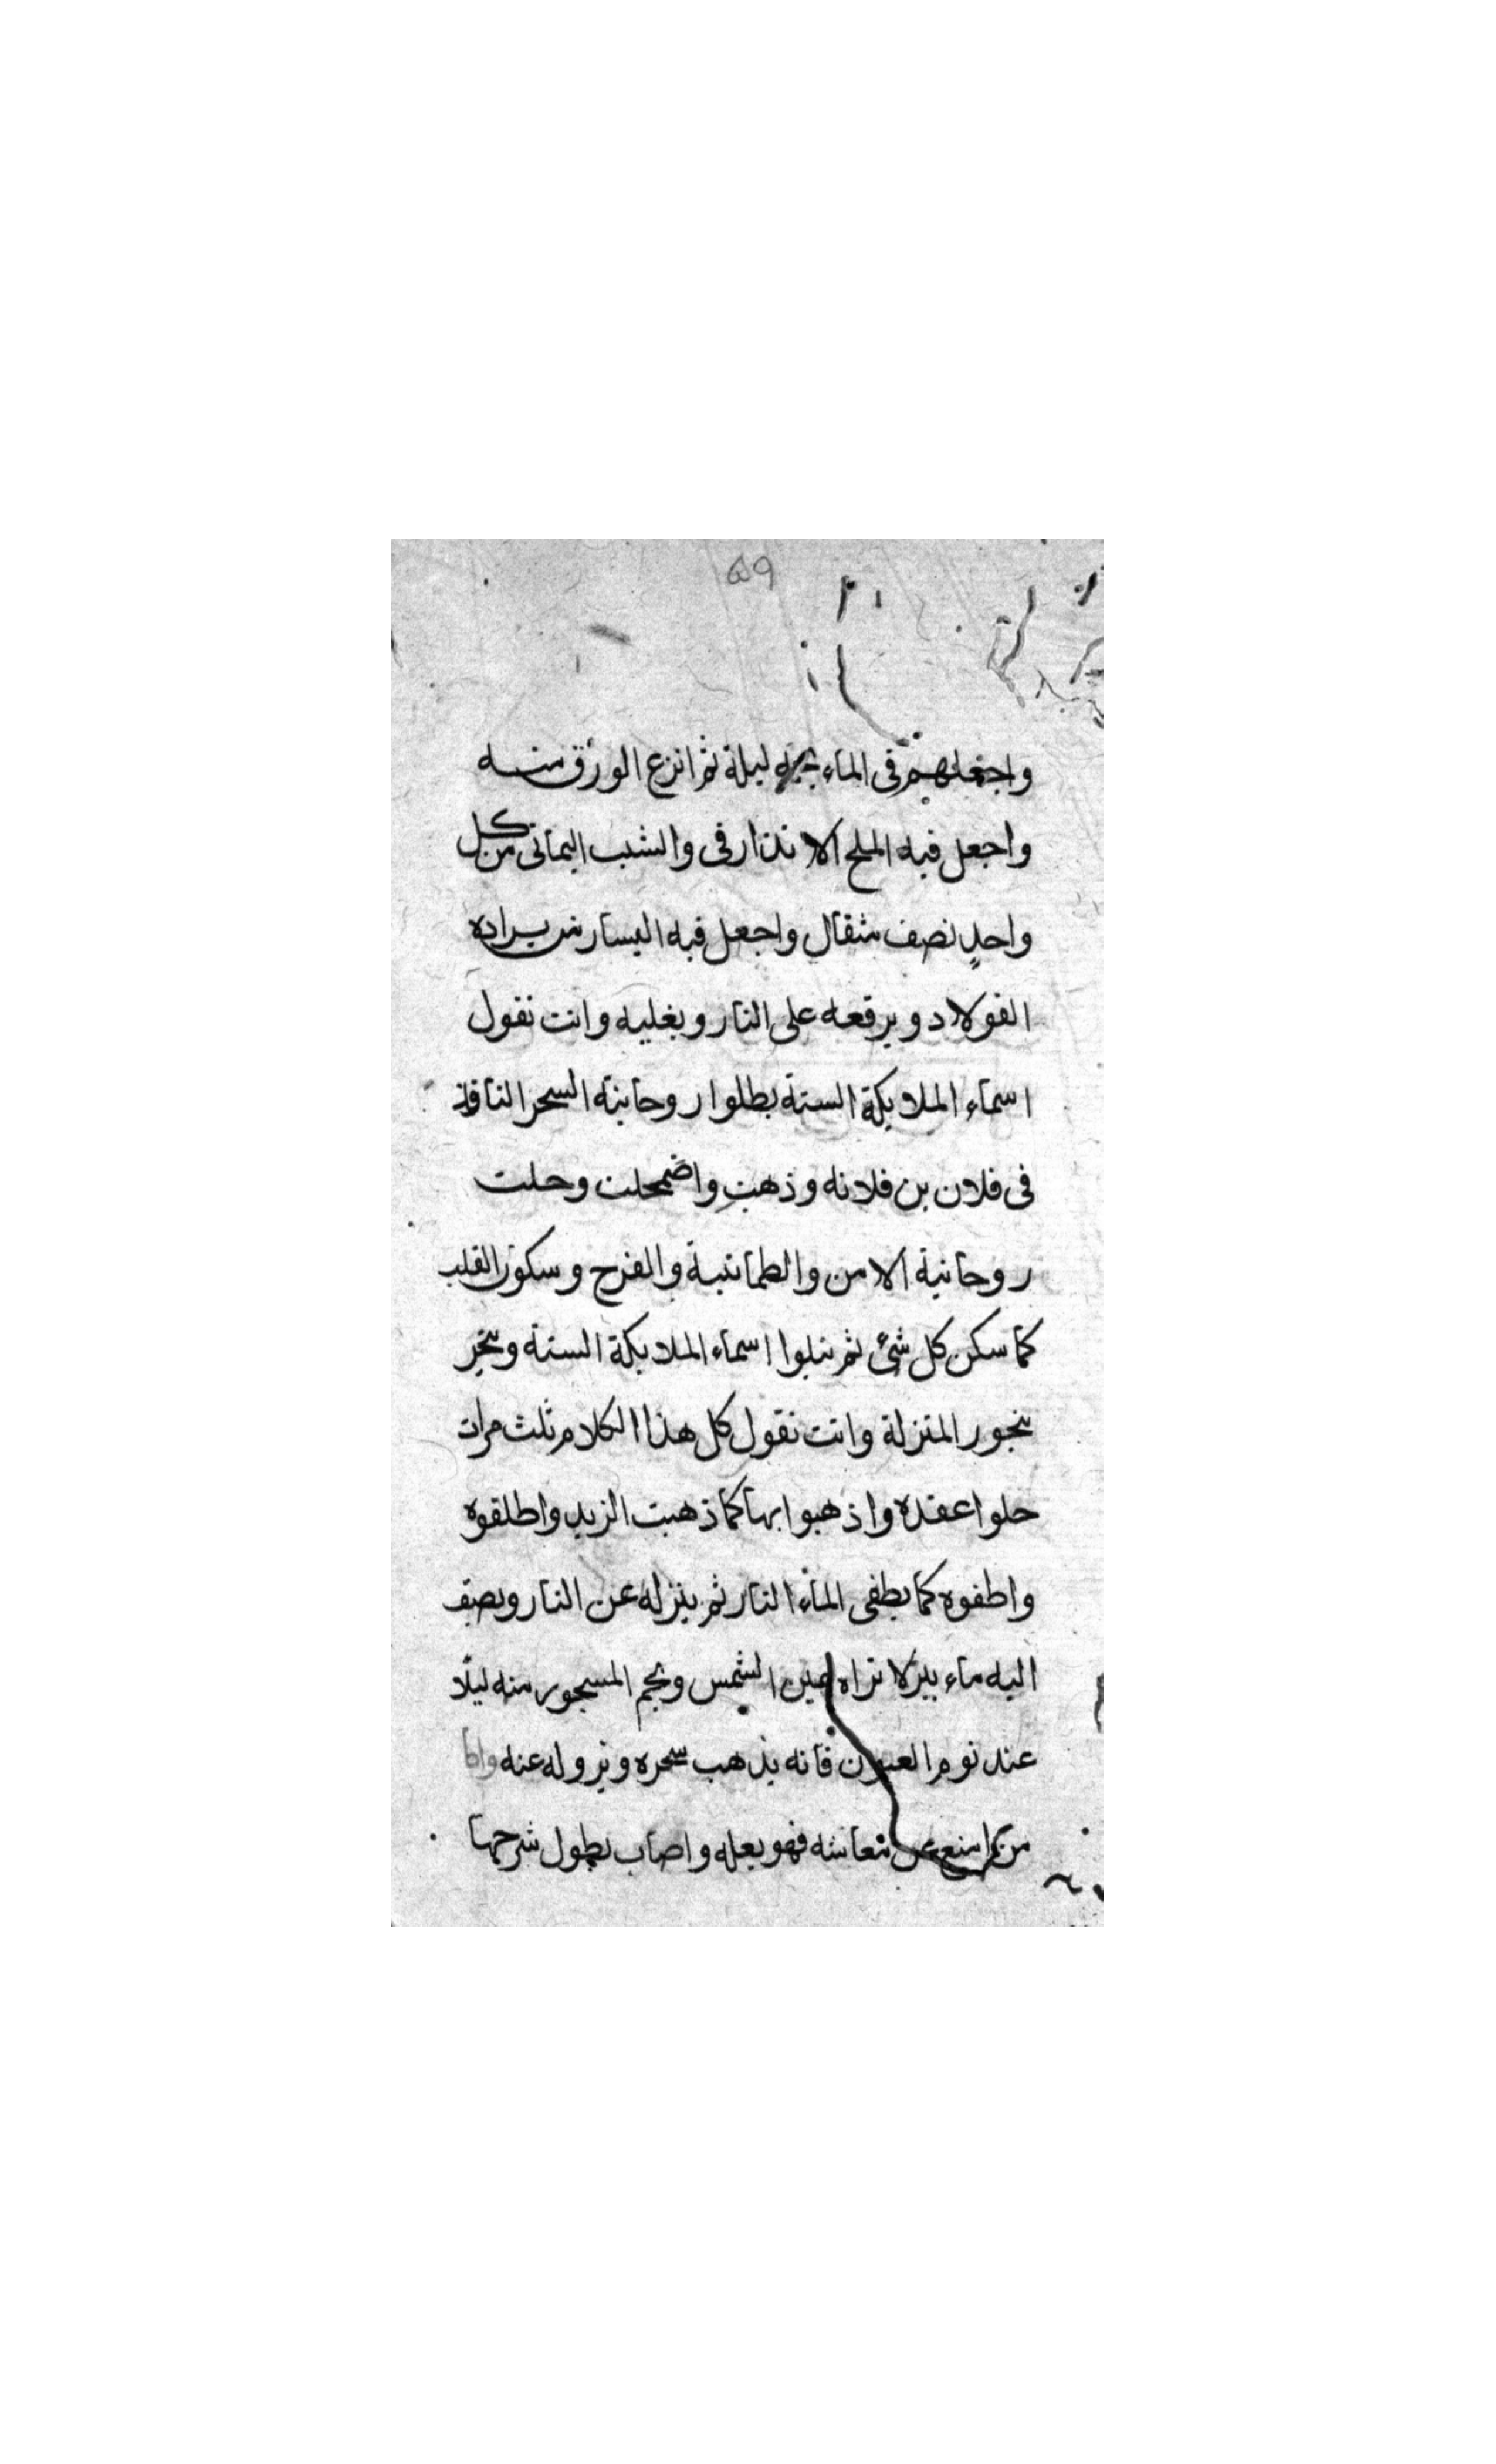 ٥٩
واجعلهم فى الماء ليلة ثم انزع الورق منه
واجعل فيه الملح الاندارفى والشب اليمانى من كل
واحد نصف مثقال واجعل فيه اليسار من براده
الفولاد ويرفعه على النار ويغليه وانت تقول
اسماء الملايكة الستة بطلوا روحانية السحر النافذ
فى فلان بن فلانه وذهبت واضمحلت وحلت
روحانية الامن والطمانينة والفرح وسكون القلب
كما سكن كل شئ ثم تتلوا اسماء الملايكة الستة وتبخر
ببخور المنزلة وانت تقول كل هذا الكلام ثلث مرات
حلوا عقده واذهبوا بها كما ذهبت الزبد واطلقوه
واطفوه كما يطفى الماء النار ثم ينزله عن النار ويصف
اليه ماء بير لا تراه عين الشمس ويحم المسحور منه ليلا
عند نوم العيون فانه يذهب سحره ويزوله عنه واما
من معاشه فهو بعله واصاب يطول شرحها